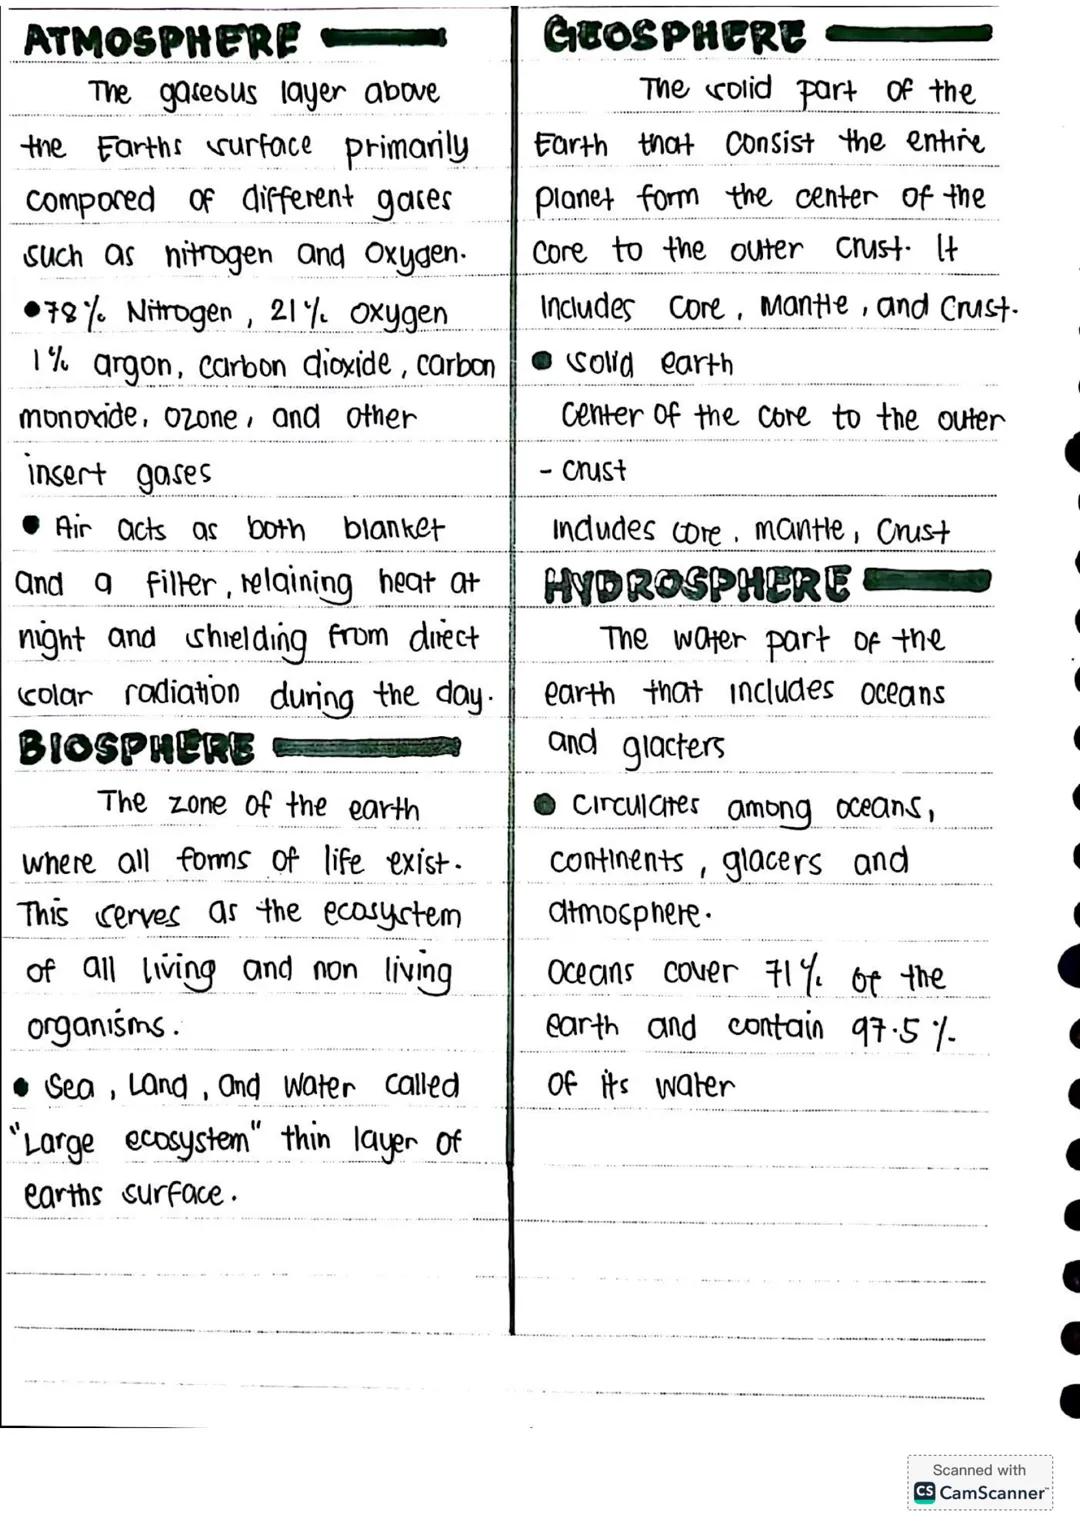 ATMOSPHERE
The gaseous layer above
the Earths surface primarily
compared of different gases
such as nitrogen and oxygen.
•78% Nitrogen, 21% oxygen
1% argon, carbon dioxide, carbon
monoxide, ozone, and other
insert gases
• Air acts as both blanket
and a filter, relaining heat at
night and shielding from direct
solar radiation during the day.
BIOSPHERE
The zone of the earth
where all forms of life exist.
This serves as the ecosystem
of all living and non living
organisms.
• Sea, Land, and Water called
"Large ecosystem" thin layer of
earths surface.
GEOSPHERE
The solid part of the
Earth that Consist the entire
planet form the center of the
core to the outer crust. It
Includes core, Mantle, and Crust.
• solid earth
Center of the core to the outer
- crust
Includes core, mantle, Crust
HYDROSPHERE
The water part of the
earth that includes oceans
and glacters
• Circulates among oceans,
continents, glacers and
atmosphere.
Oceans cover 71% of the
earth and contain 97.5%
of its water
Scanned with
CS CamScanner